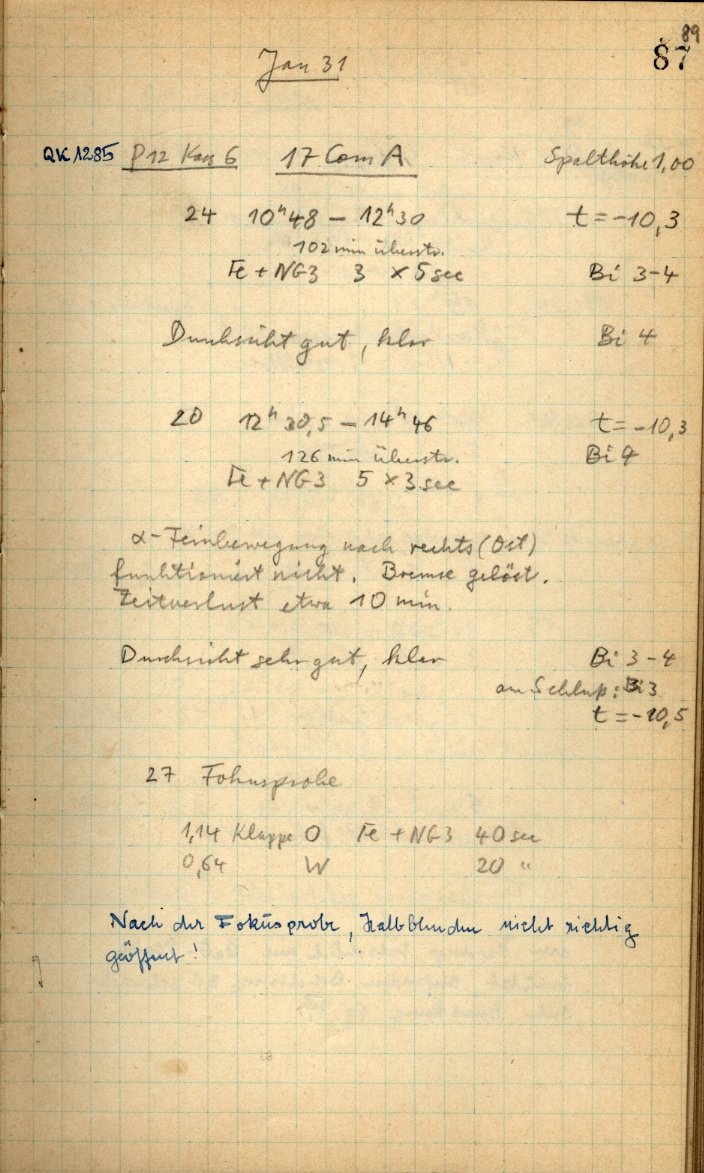 89
87
Jan 31
QK1285 P12 Kass 6 17 Com A Spalthöhe 1,00
24 10ʰ48 – 12ʰ30 t = -10,3
102 min überstr.
Fe + NG3 3 × 5 sec Bi 3-4
Durchsicht gut, klar Bi 4
20 12ʰ30,5 – 14ʰ46 t = -10,3
126 min überstr. Bi 4
Fe + NG3 5 × 3 sec
α-Feinbewegung nach rechts (Ost)
funktioniert nicht. Bremse gelöst.
Zeitverlust etwa 10 min.
Durchsicht sehr gut, klar Bi 3-4
am Schluß: Bi 3
t = -10,5
27 Fokusprobe
1,14 Klappe O Fe + NG3 40 sec
0,64 W 20 "
Nach der Fokusprobe, Halbblenden nicht richtig
geöffnet!